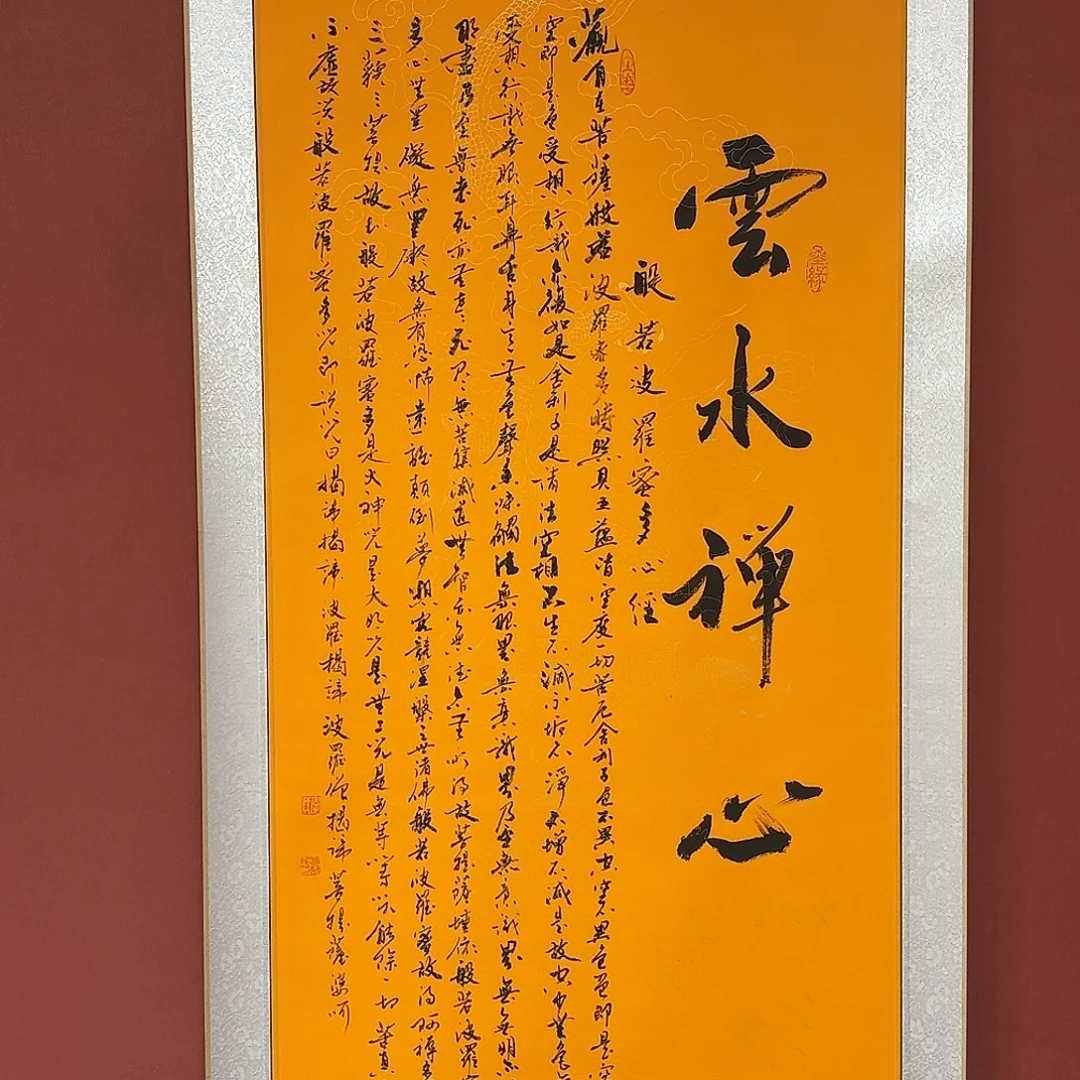 雲水禅心
般若波羅蜜多心經
觀自在菩薩般若波羅蜜多時照見五蘊皆空度一切苦厄舍利子色不異空空不異色色即是空
空即是色受想行識亦復如是舍利子是諸法空相不生不滅不垢不淨不增不減是故空中無色無
受想行識無眼耳鼻舌身意無色聲香味觸法無眼界無意識界乃至無意識界無無明亦
明盡乃至無老死亦無老死盡無苦集滅道無智亦無得以無所得故菩提薩埵依般若波羅蜜
多心無罣礙無罣礙故無有恐怖遠離顛倒夢想究竟涅槃三世諸佛般若波羅蜜故得阿耨多
三藐三菩提故知般若波羅蜜多是大神咒是大明咒是無上咒是無等等咒能除一切苦真
不虛故說般若波羅蜜多咒即說咒曰揭諦揭諦波羅揭諦波羅僧揭諦菩提薩婆訶